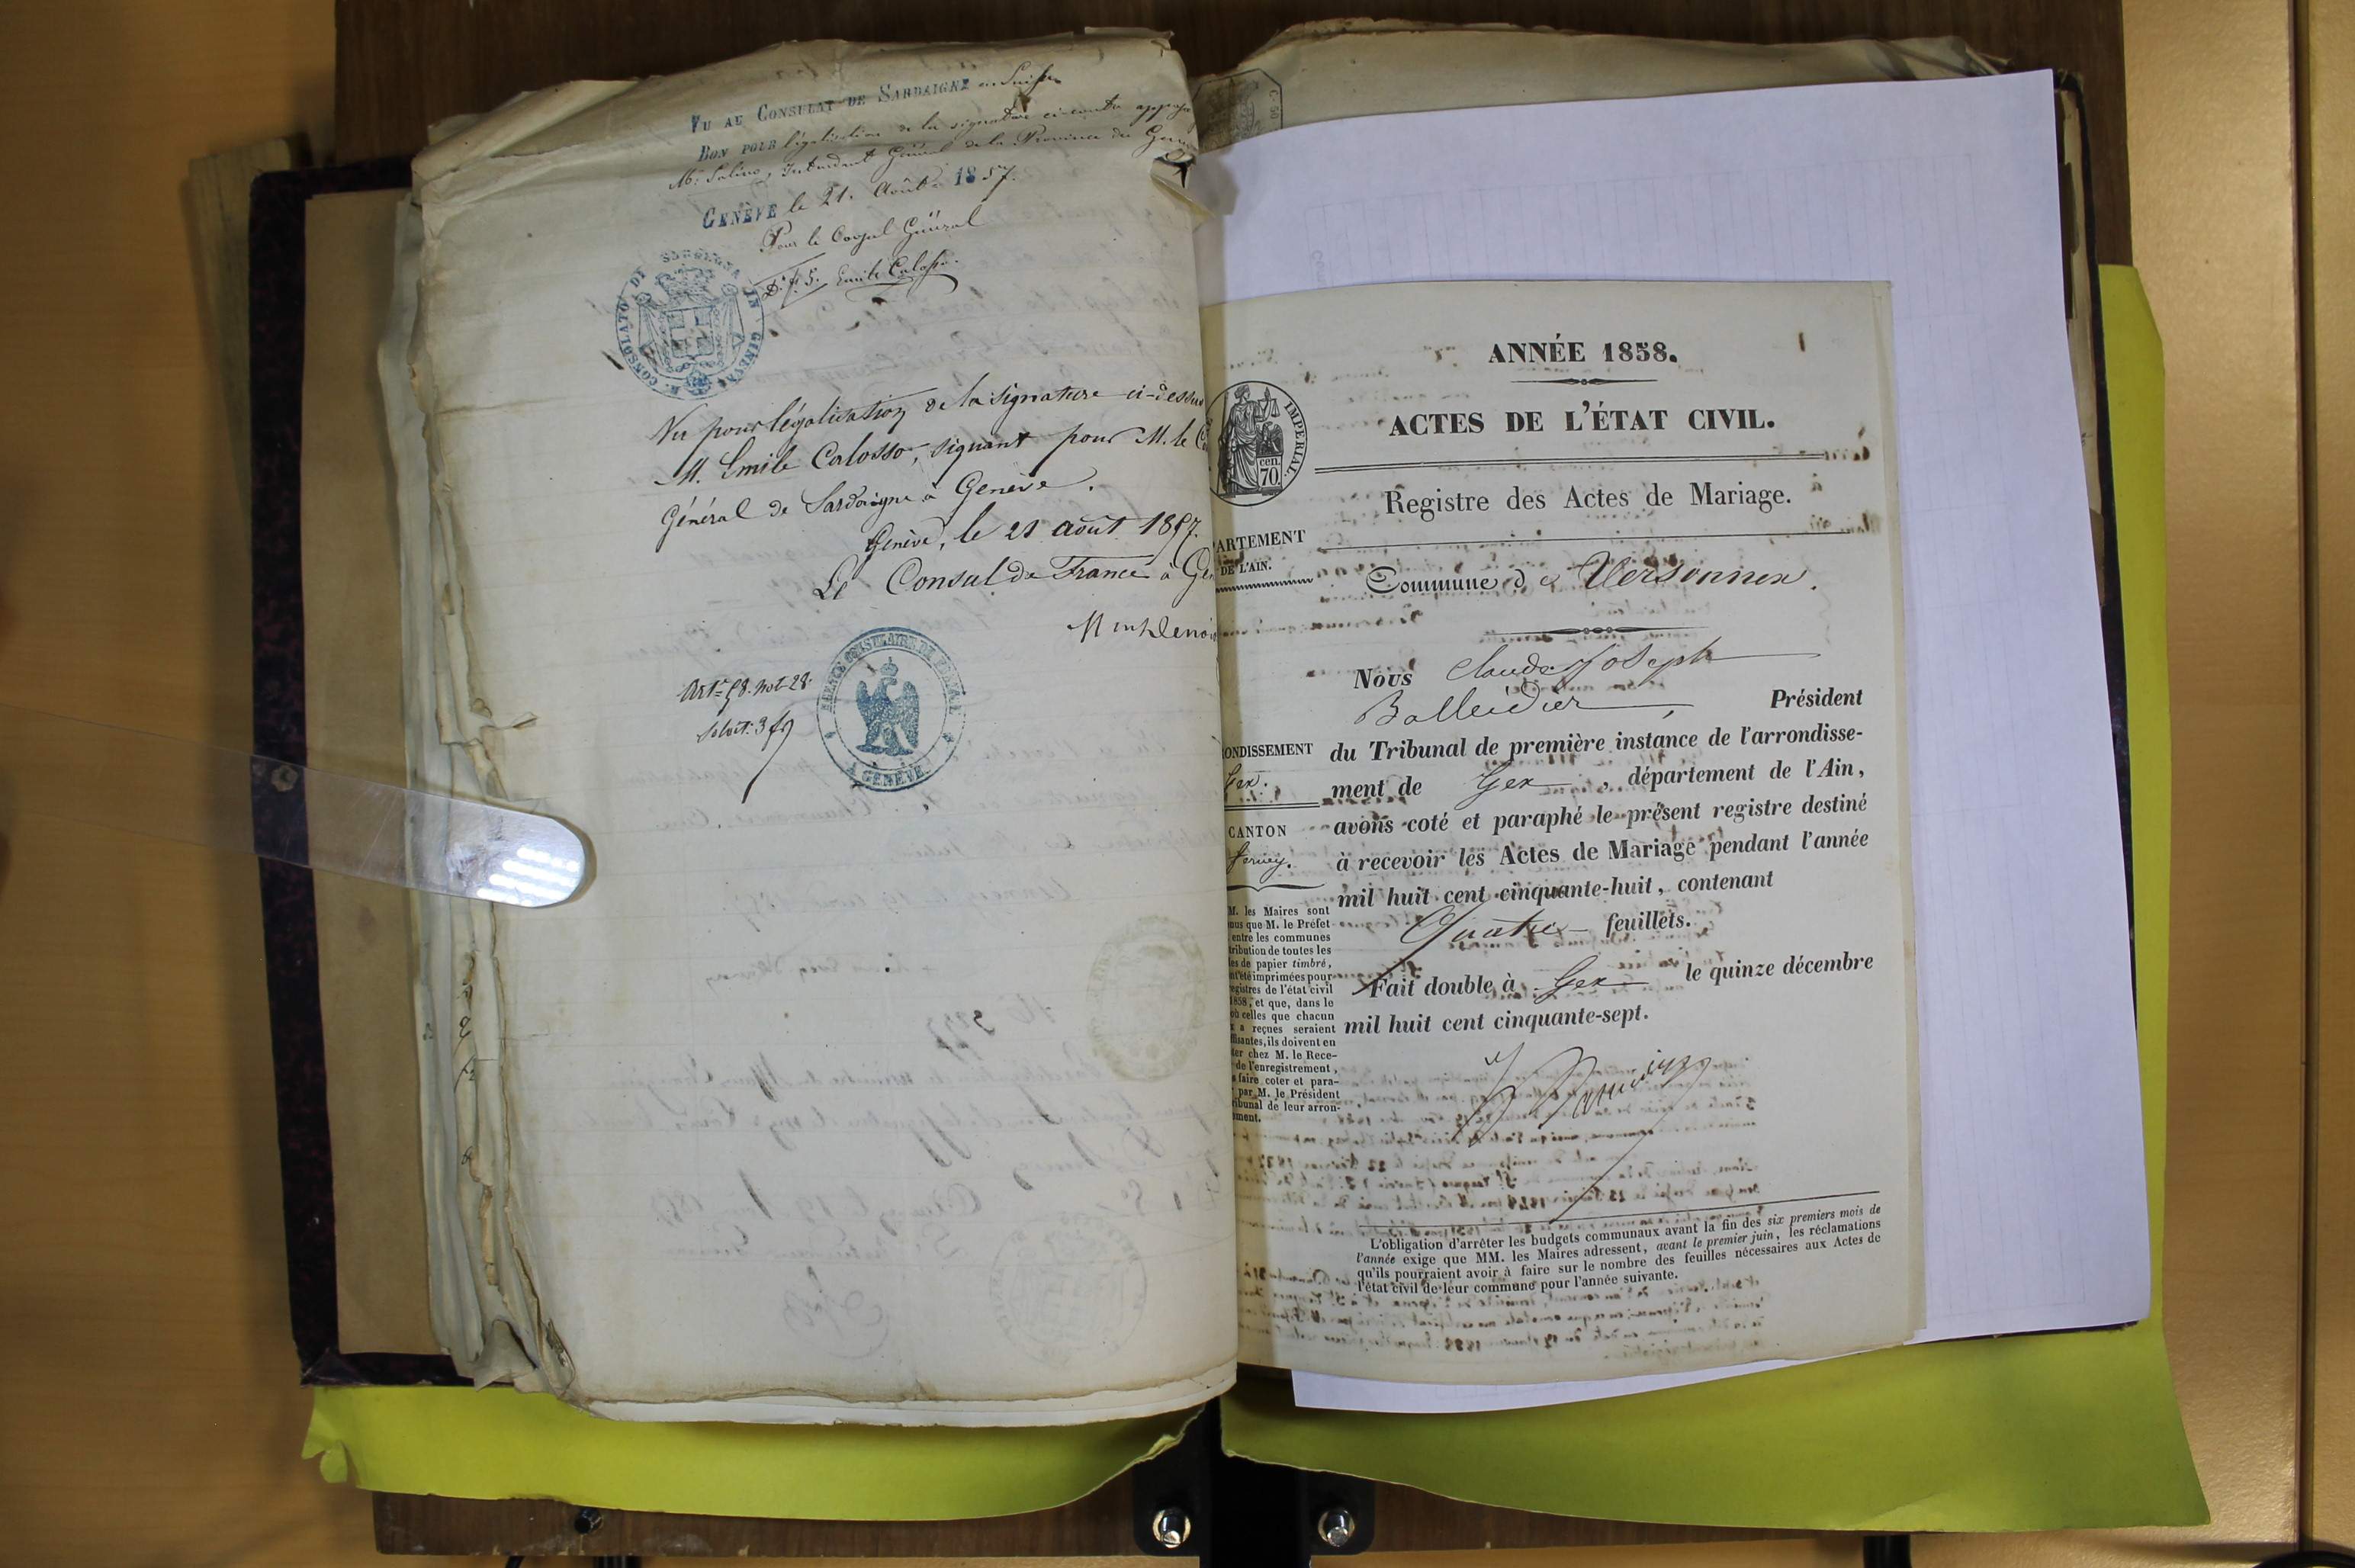 VU AU CONSULAT DE SARDAIGNE en Suisse
BON POUR légalisation de la signature ci-contre apposée
Mr. Salino, Intendant Général de la Province du Gene
GENÈVE le 21. Août 1857.
Pour le Consul Général
Emile Calosso.
R. CONSOLATO DI SARDEGNA IN GINEVRA
Vu pour légalisation de la signature ci-dessus
M. Emile Calosso, signant pour M. le Co
Général de Sardaigne à Genève.
Genève, le 21 août 1857.
Le Consul de France à Gen
AGENCE CONSULAIRE DE FRANCE
A GENÈVE
ANNÉE 1858.
1
ACTES DE L'ÉTAT CIVIL.
IMPERIAL.
cen.
70
Registre des Actes de Mariage.
ARTEMENT
DE L'AIN.
Commune de Versonnex.
Nous Claude Joseph
Balleidier, Président
du Tribunal de première instance de l'arrondisse-
ment de Gex, département de l'Ain,
avons coté et paraphé le présent registre destiné
à recevoir les Actes de Mariage pendant l'année
mil huit cent cinquante-huit, contenant
Quatre feuillets.
Fait double à Gex le quinze décembre
mil huit cent cinquante-sept.
ONDISSEMENT
Gex.
CANTON
Ferney.
M. les Maires sont
nus que M. le Préfet
entre les communes
tribution de toutes les
les de papier timbré,
nt été imprimées pour
egistres de l'état civil
1858, et que, dans le
où celles que chacun
x a reçues seraient
ffisantes, ils doivent en
ter chez M. le Rece-
de l'enregistrement,
s faire coter et para-
par M. le Président
ribunal de leur arron-
ement.
L'obligation d'arrêter les budgets communaux avant la fin des six premiers mois de
l'année exige que MM. les Maires adressent, avant le premier juin, les réclamations
qu'ils pourraient avoir à faire sur le nombre des feuilles nécessaires aux Actes de
l'état civil de leur commune pour l'année suivante.